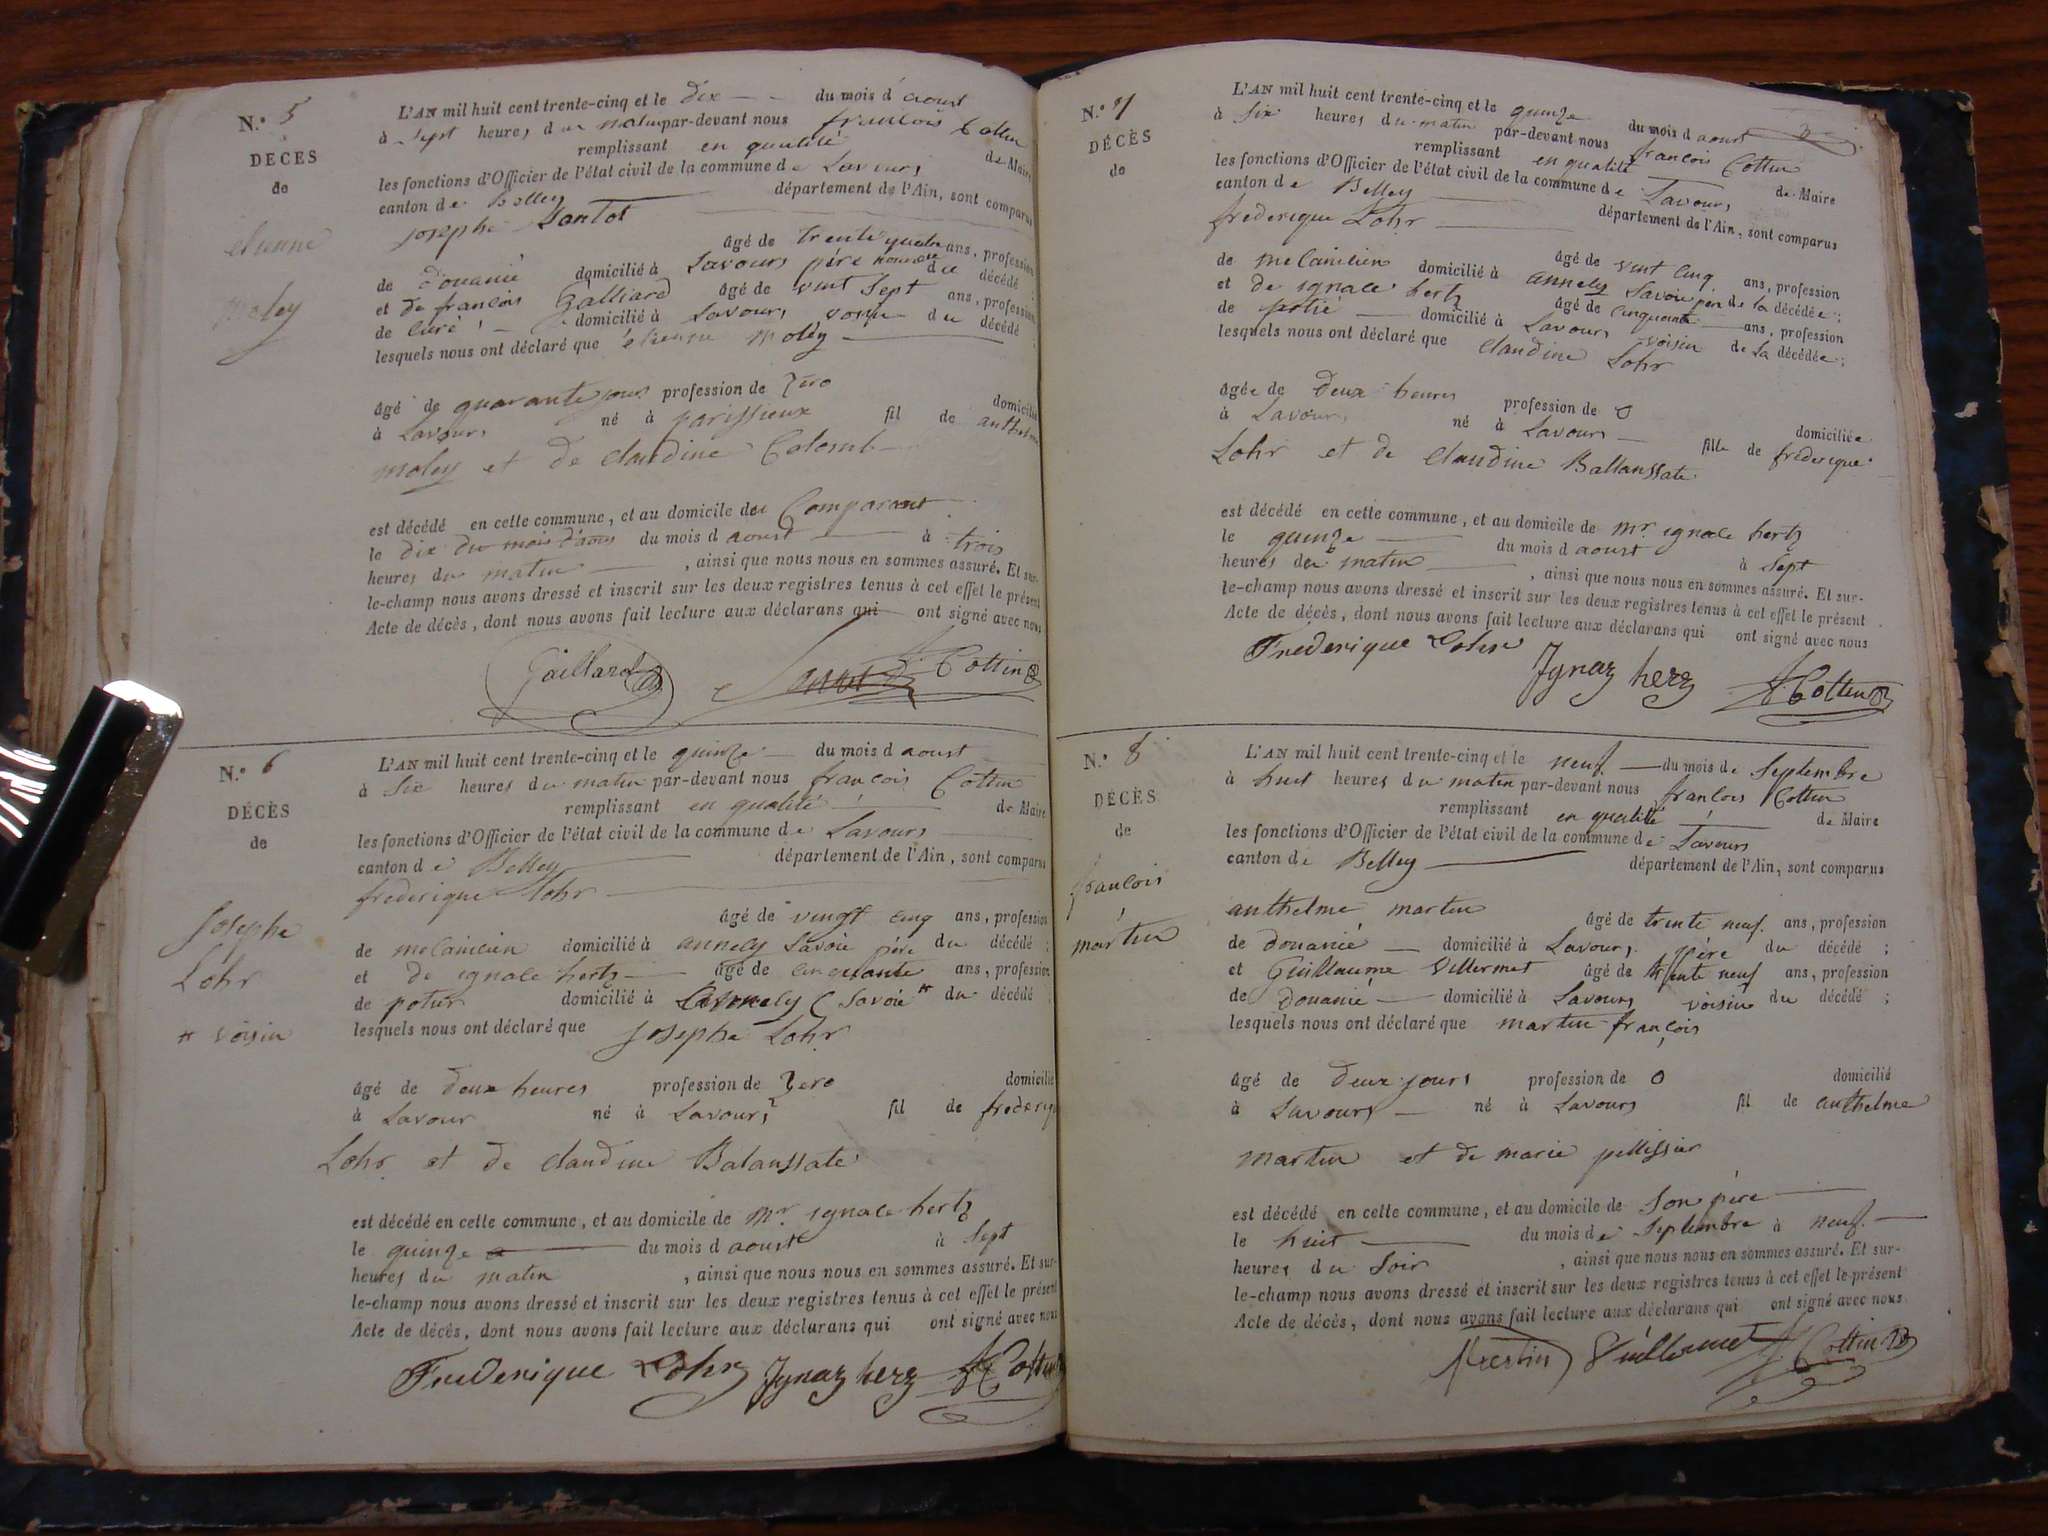 N.o 5
DECES
de
etienne
moley
L'AN mil huit cent trente-cinq et le dix du mois d aoust
à sept heures du matin par-devant nous francois Cottin
remplissant en qualité de Maire
les fonctions d'Officier de l'état civil de la commune de Savours
canton de Belley département de l'Ain, sont comparus
josephe
âgé de trente quatre ans, profession
de douanié domicilié à Savours père nourricié du décédé ;
et de francois Galliard âgé de vint sept ans, profession
de curé domicilié à Savours voisin du décédé ;
lesquels nous ont déclaré que etienne moley
âgé de quarante jours profession de zero domicilié
à Savours né à parissieux fil de anthelme
moley et de claudine Colomb
est décédé en cette commune, et au domicile du Comparant
le dix du mois d'aous du mois d aoust à trois
heures du matin , ainsi que nous nous en sommes assuré. Et sur-
le-champ nous avons dressé et inscrit sur les deux registres tenus à cet effet le présent
Acte de décès, dont nous avons fait lecture aux déclarans qui ont signé avec nous
Gaillard Cottin
N.o 6
DÉCÈS
de
Josephe
Lohr
voisin
L'AN mil huit cent trente-cinq et le quinze du mois d aoust
à Six heures du matin par-devant nous francois Cottin
remplissant en qualité de Maire
les fonctions d'Officier de l'état civil de la commune de Savours
canton de Belley département de l'Ain, sont comparus
frederique Lohr
âgé de vingt cinq ans, profession
de mecanicien domicilié à annecy Savoie père du décédé ;
et de ignace hertz âgé de cinquante ans, profession
de domicilié à annecy Savoie du décédé ;
lesquels nous ont déclaré que Josephe Lohr
âgé de deux heures profession de zero domicilié
à Savour né à Savours fil de frederique
Lohr et de claudine Balanssate
est décédé en cette commune, et au domicile de mr ignace hertz
le quinze du mois d aoust à sept
heures du matin , ainsi que nous nous en sommes assuré. Et sur-
le-champ nous avons dressé et inscrit sur les deux registres tenus à cet effet le présent
Acte de décès, dont nous avons fait lecture aux déclarans qui ont signé avec nous
Frederique Lohr Jgnaz herz Cottin
N.o 7
DÉCÈS
de
L'AN mil huit cent trente-cinq et le quinze du mois d aoust
à Six heures du matin par-devant nous francois Cottin
remplissant en qualité de Maire
les fonctions d'Officier de l'état civil de la commune de Savours
canton de Belley département de l'Ain, sont comparus
frederique Lohr
âgé de vint cinq ans, profession
de mecanicien domicilié à annecy Savoie père de la décédée ;
et de ignace hertz âgé de cinquante ans, profession
de domicilié à Savours voisin de la décédée ;
lesquels nous ont déclaré que claudine Lohr
âgée de deux heures profession de 0 domiciliée
à Savours né à Savours fille de frederique
Lohr et de claudine Ballanssate
est décédé en cette commune, et au domicile de mr ignace hertz
le quinze du mois d aoust à sept
heures du matin , ainsi que nous nous en sommes assuré. Et sur-
le-champ nous avons dressé et inscrit sur les deux registres tenus à cet effet le présent
Acte de décès, dont nous avons fait lecture aux déclarans qui ont signé avec nous
Frederique Lohr
Jgnaz herz Cottin
N.o 8
DÉCÈS
de
francois
martin
L'AN mil huit cent trente-cinq et le neuf du mois de Septembre
à huit heures du matin par-devant nous francois Cottin
remplissant en qualité de Maire
les fonctions d'Officier de l'état civil de la commune de Savours
canton de Belley département de l'Ain, sont comparus
anthelme martin
âgé de trente neuf ans, profession
de douanié domicilié à Savours père du décédé ;
et Guillaume Villermet âgé de trente neuf ans, profession
de Douanié domicilié à Savours voisin du décédé ;
lesquels nous ont déclaré que martin françois
âgé de deux jours profession de 0 domicilié
à Savours né à Savours fil de anthelme
martin et de marie pellissier
est décédé en cette commune, et au domicile de Son père
le huit du mois de Septembre à neuf
heures du Soir , ainsi que nous nous en sommes assuré. Et sur-
le-champ nous avons dressé et inscrit sur les deux registres tenus à cet effet le présent
Acte de décès, dont nous avons fait lecture aux déclarans qui ont signé avec nous
Cottin